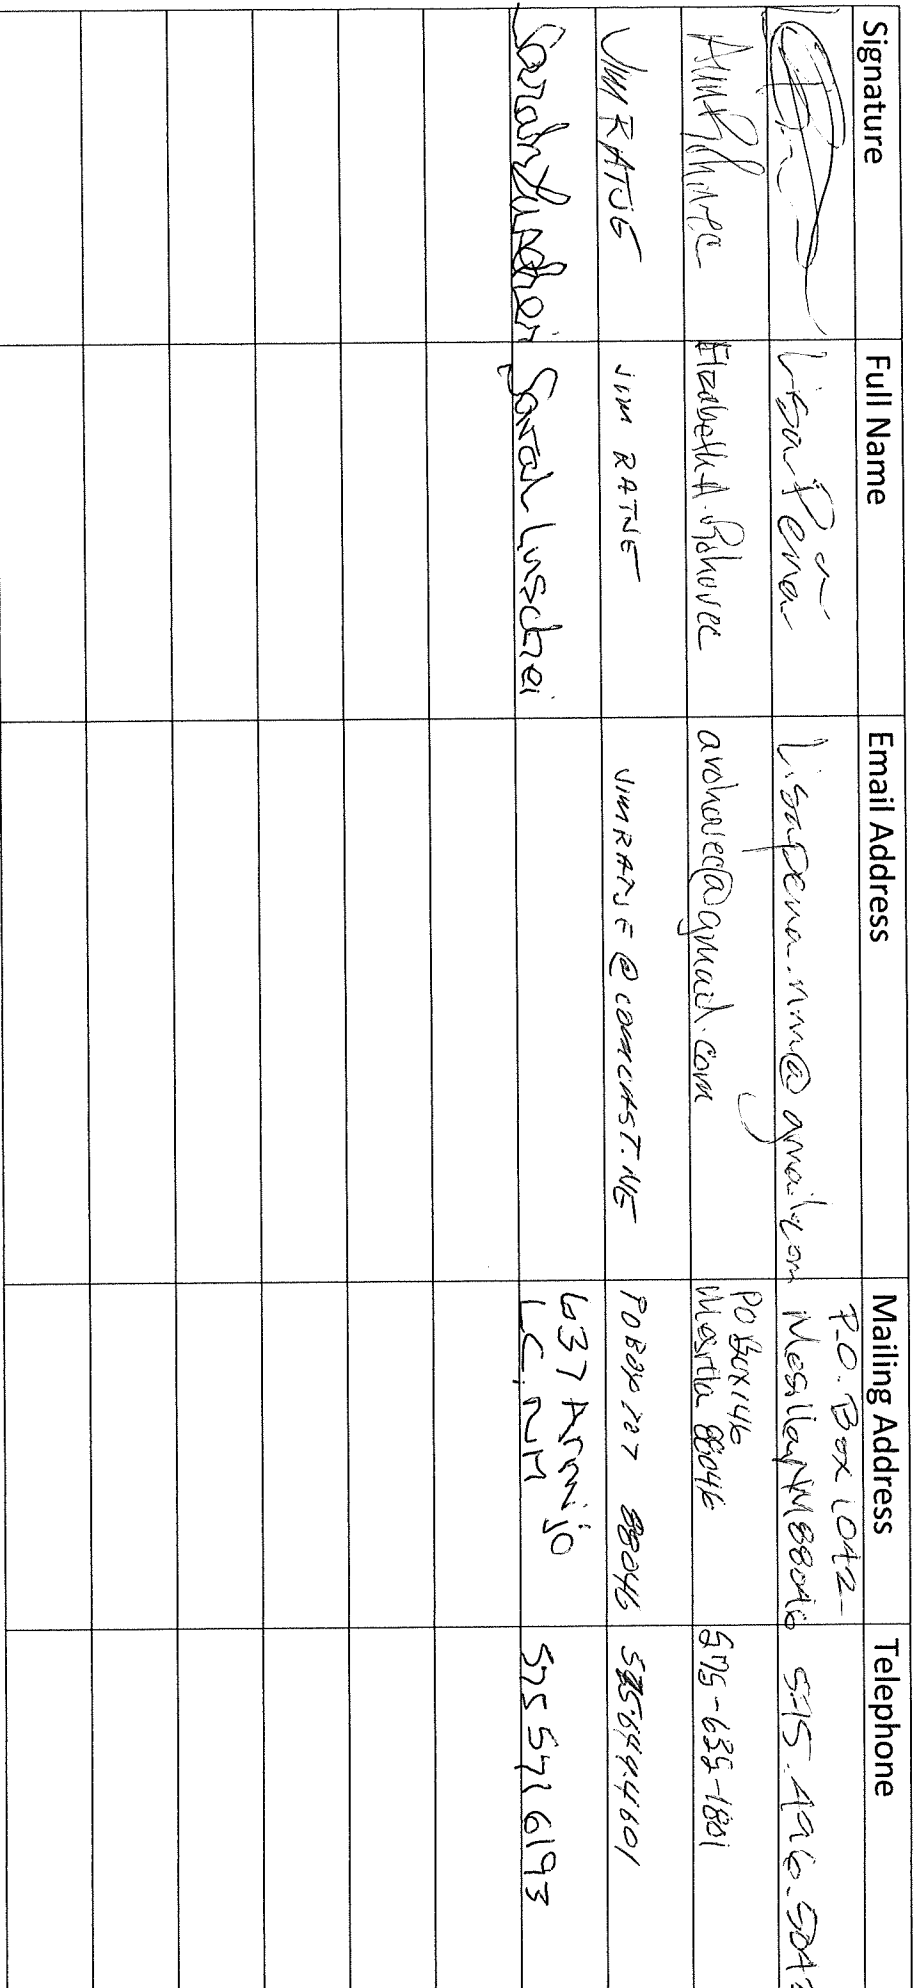 Signature Full Name Email Address Mailing Address Telephone
Lisa Peña lisapena.nm@gmail.com P.O. Box 1042
Mesilla, NM 88046 575.496.504
Elizabeth A. Rohovec arohovec@gmail.com PO Box 146
Mesilla 88046 575-635-1801
JIM RATJE JIM RATJE JIMRATJE@COMCAST.NE PO BOX 727 88046 5256444601
Sarah Luschei Sarah Luschei 637 Armijo
LC, NM 575 571 6193